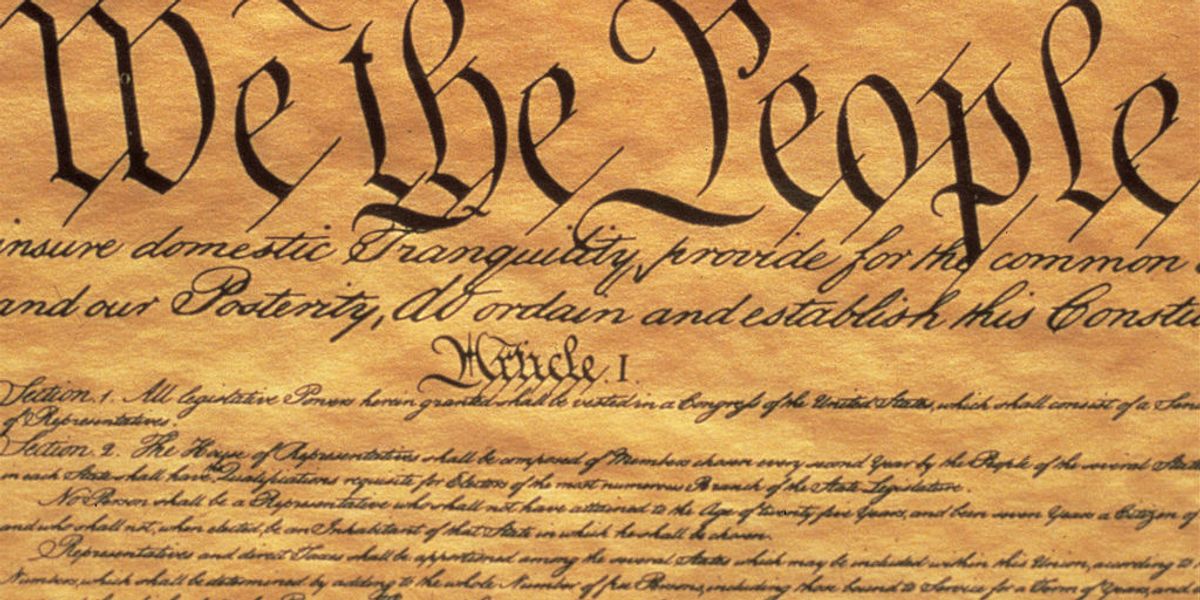 We the People
insure domestic Tranquility, provide for the common
and our Posterity, do ordain and establish this Constit
Article. I.
Section. 1. All legislative Powers herein granted shall be vested in a Congress of the United States, which shall consist of a Sen
of Representatives.
Section. 2. The House of Representatives shall be composed of Members chosen every second Year by the People of the several Stat
in each State shall have the Qualifications requisite for Electors of the most numerous Branch of the State Legislature.
No Person shall be a Representative who shall not have attained to the Age of twenty five Years, and been seven Years a Citizen of
and who shall not, when elected, be an Inhabitant of that State in which he shall be chosen.
Representatives and direct Taxes shall be apportioned among the several States which may be included within this Union, according to
Numbers, which shall be determined by adding to the whole Number of free Persons, including those bound to Service for a Term of Years, and